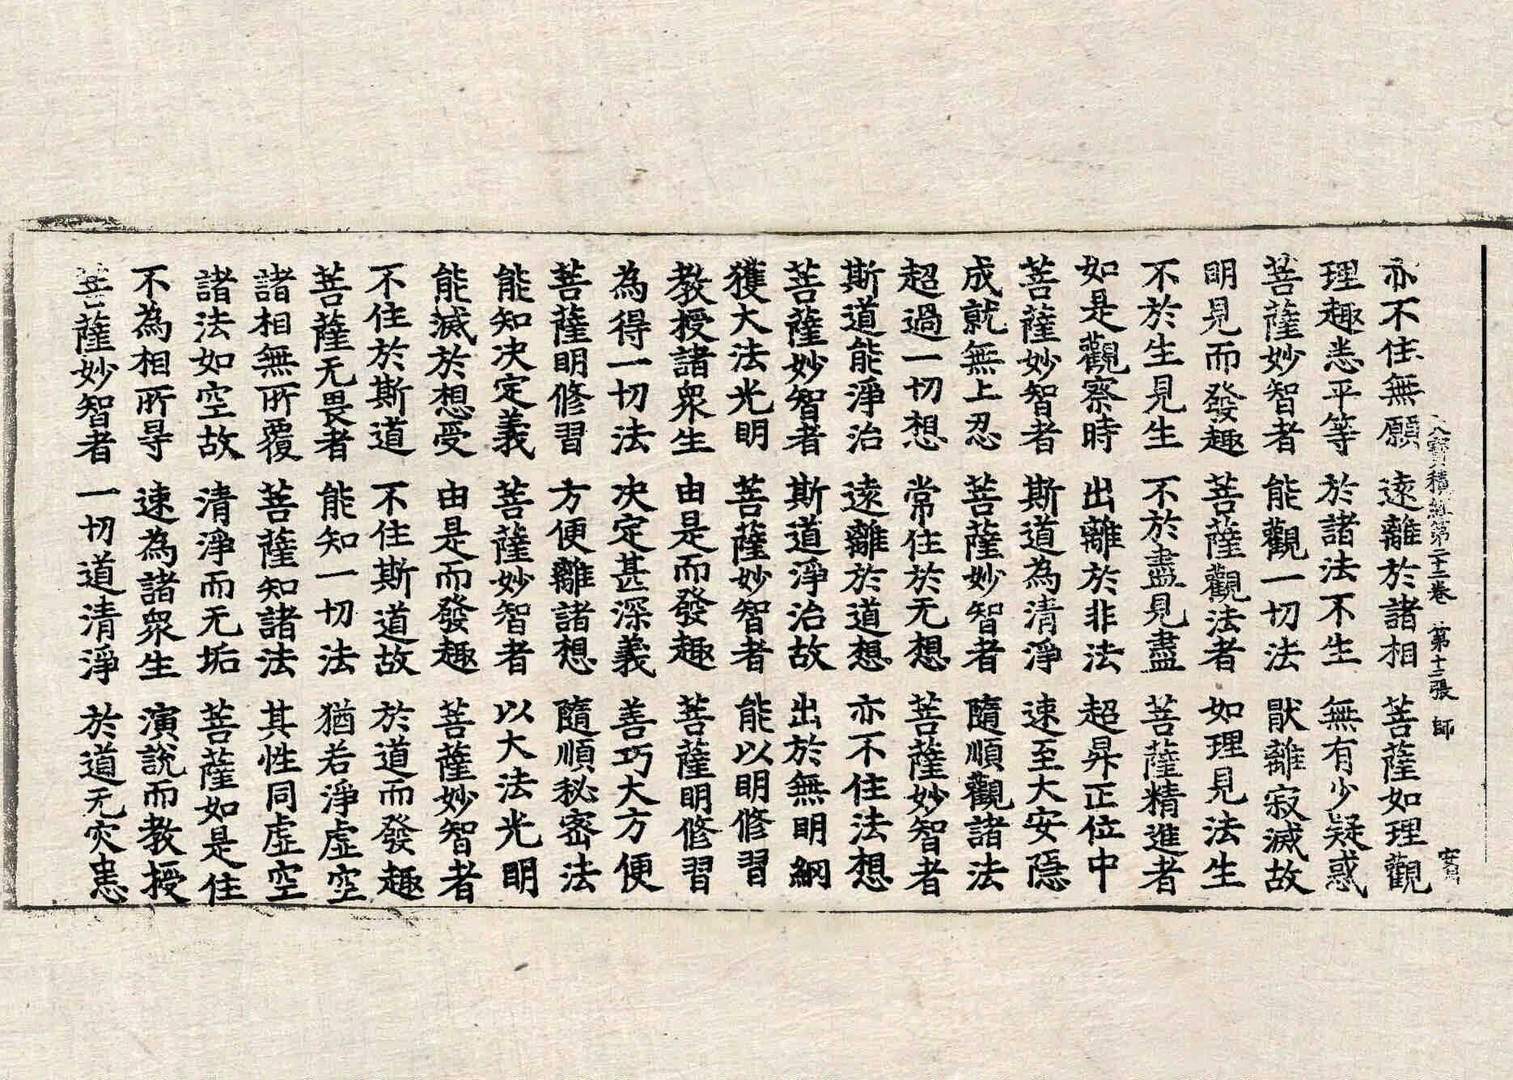 大寶積經第二十二卷　第十三張　師
亦不住無願　遠離於諸相　菩薩如理觀
理趣悉平等　於諸法不生　無有少疑惑
菩薩妙智者　能觀一切法　猒離寂滅故
明見而發趣　菩薩觀法者　如理見法生
不於生見生　不於盡見盡　菩薩精進者
如是觀察時　出離於非法　超昇正位中
菩薩妙智者　斯道為清淨　速至大安隱
成就無上忍　菩薩妙智者　隨順觀諸法
超過一切想　常住於无想　菩薩妙智者
斯道能淨治　遠離於道想　亦不住法想
菩薩妙智者　斯道淨治故　出於無明網
獲大法光明　菩薩妙智者　能以明修習
教授諸眾生　由是而發趣　菩薩明修習
為得一切法　決定甚深義　善巧大方便
菩薩明修習　方便離諸想　隨順秘密法
能知決定義　菩薩妙智者　以大法光明
能滅於想受　由是而發趣　菩薩妙智者
不住於斯道　不住斯道故　於道而發趣
菩薩无畏者　能知一切法　猶若淨虛空
諸相無所覆　菩薩知諸法　其性同虛空
諸法如空故　清淨而无垢　菩薩如是住
不為相所㝵　速為諸眾生　演說而教授
菩薩妙智者　一切道清淨　於道无灾患